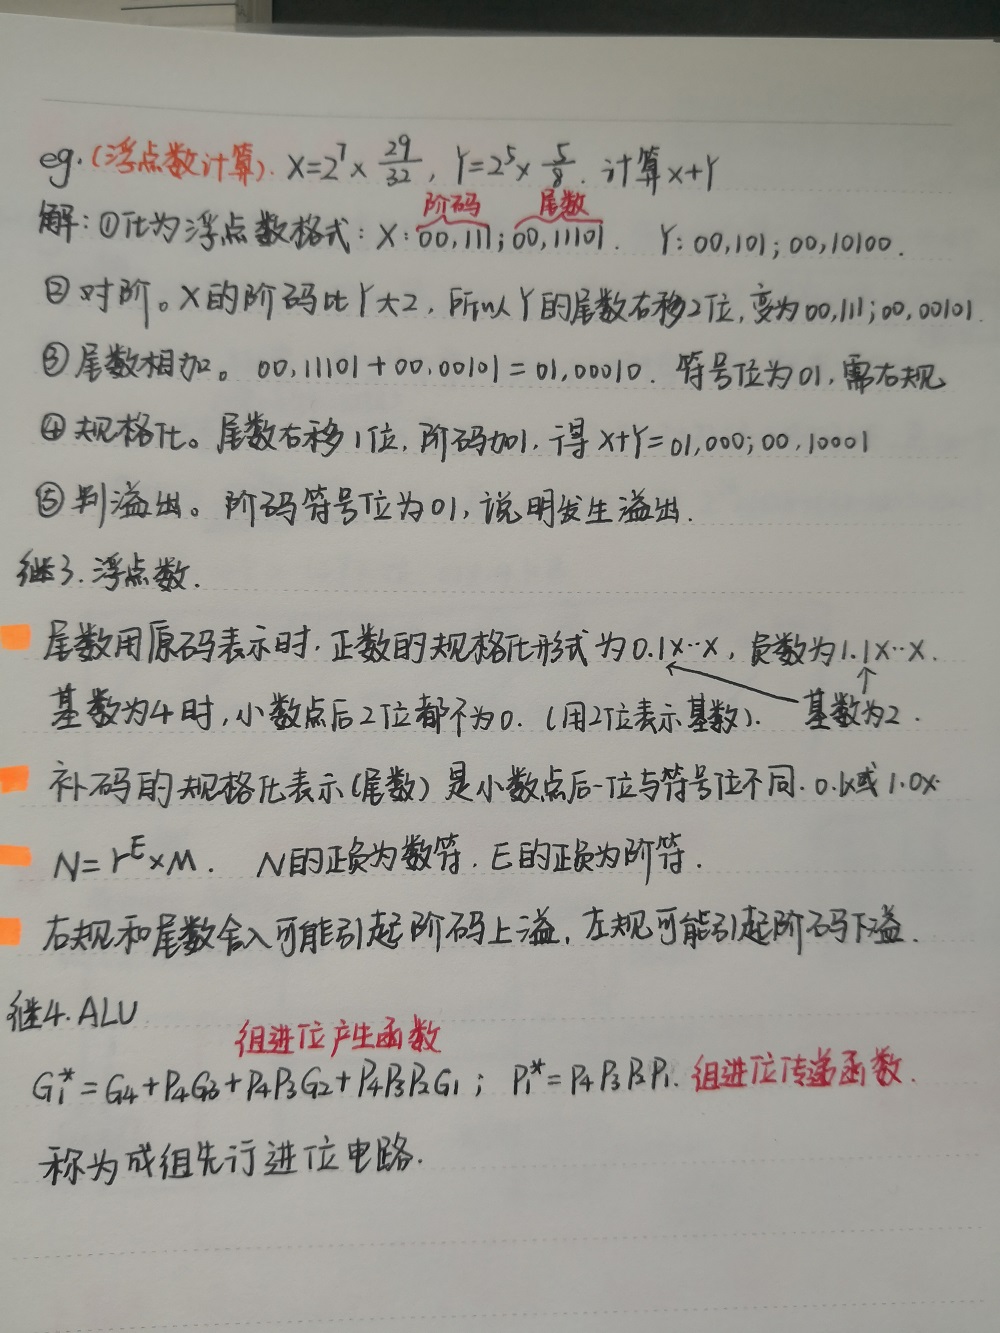 eg.(浮点数计算). X=2^7 × 29/32, Y=2^5 × 5/8. 计算X+Y
阶码 尾数
解: ①化为浮点数格式: X: 00,111; 00,11101. Y: 00,101; 00,10100.
②对阶。X的阶码比Y大2, 所以Y的尾数右移2位, 变为00,111; 00,00101.
③尾数相加。00,11101+00,00101=01,00010. 符号位为01, 需右规
④规格化。尾数右移1位, 阶码加1, 得X+Y=01,000; 00,10001
⑤判溢出。阶码符号位为01, 说明发生溢出.
继3. 浮点数.
尾数用原码表示时, 正数的规格化形式为0.1X…X, 负数为1.1X…X.
基数为4时, 小数点后2位都不为0. (用2位表示基数). 基数为2.
补码的规格化表示(尾数)是小数点后一位与符号位不同. 0.1x或1.0x.
N=r^E×M. N的正负为数符. E的正负为阶符.
右规和尾数舍入可能引起阶码上溢, 左规可能引起阶码下溢.
继4. ALU
组进位产生函数
G₁*=G₄+P₄G₃+P₄P₃G₂+P₄P₃P₂G₁; P₁*=P₄P₃P₂P₁. 组进位传递函数.
称为成组先行进位电路.